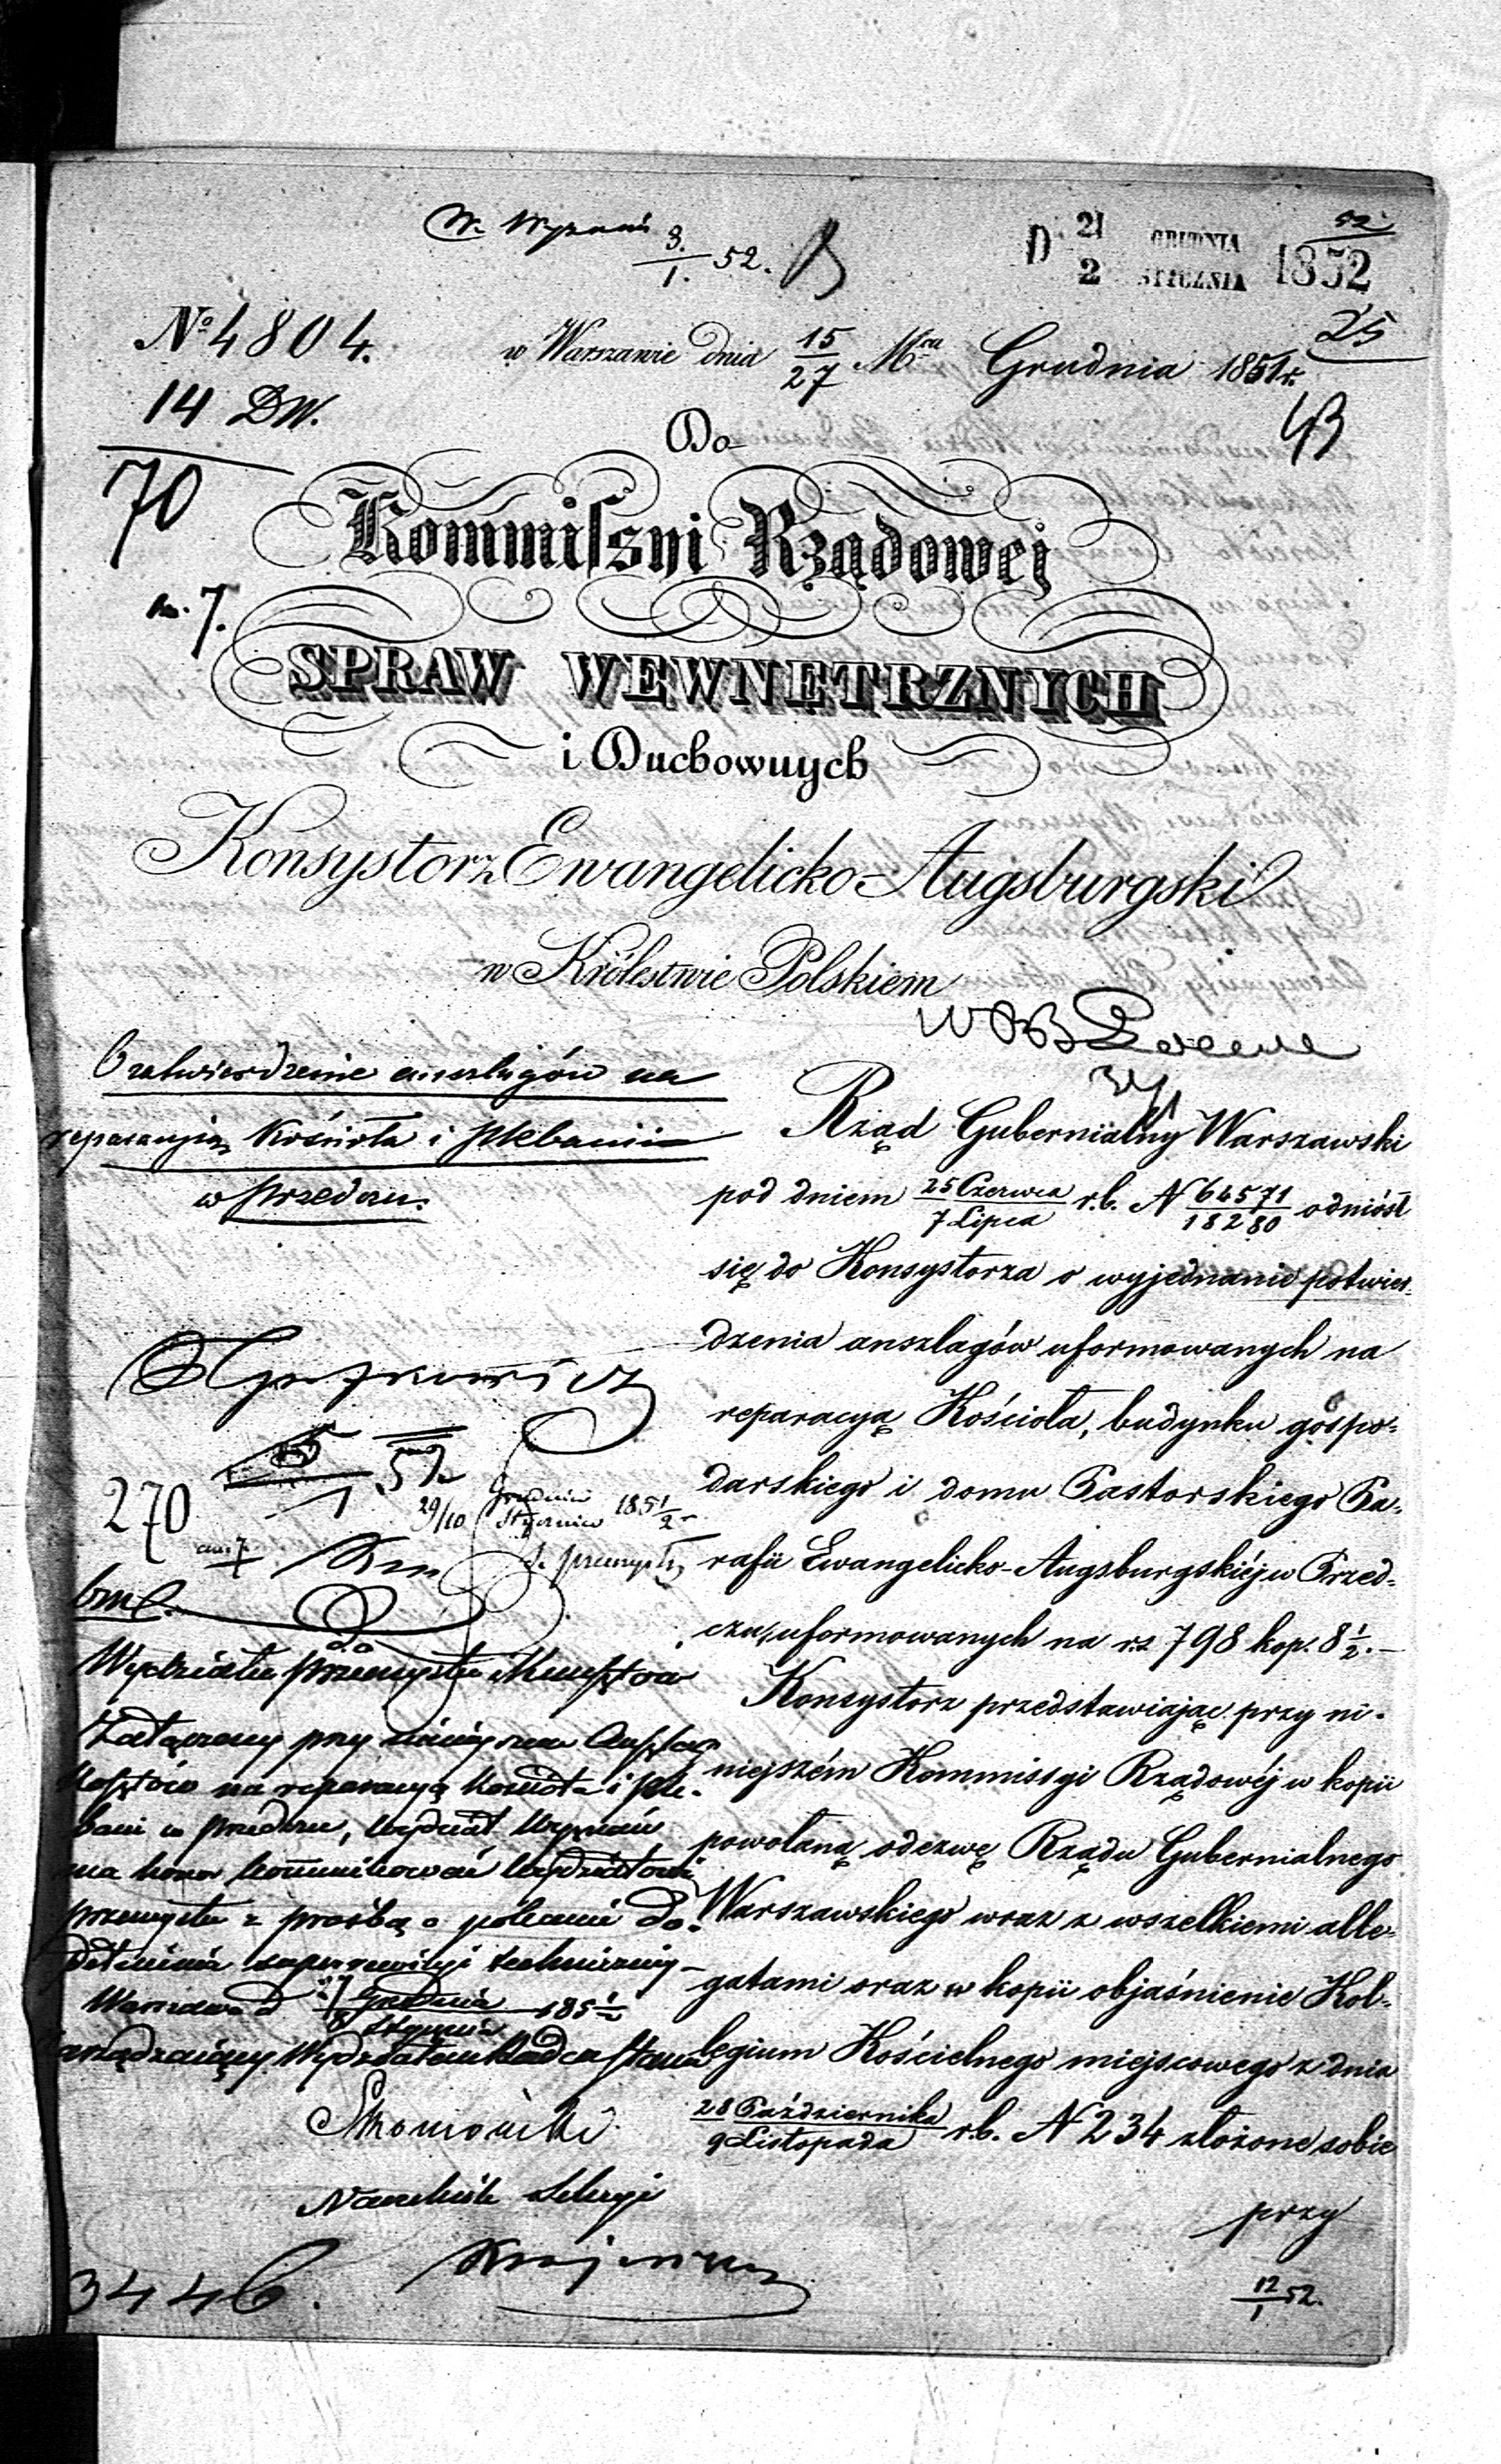 W. Wyznań 3/1. 52.
D 21/2 GRUDNIA/STYCZNIA 1852
52
25
No 4804.
14 DW.
70
w Warszawie dnia 15/27 Mca Grudnia 1851 r.
Do
Kommissyi Rządowej
7.
SPRAW WEWNĘTRZNYCH
i Duchownych
Konsystorz Ewangelicko-Augsburgski
w Królestwie Polskiem
O zatwierdzenie anszlagów na
reparacyją Kościoła i plebanii
w Przedczu.
Rząd Gubernialny Warszawski
pod dniem 25 Czerwca/7 Lipca r.b. N 64571/18280 odniósł
się do Konsystorza o wyjednanie potwier-
dzenia anszlagów uformowanych na
reparacyą Kościoła, budynku gospo-
darskiego i domu Pastorskiego Pa-
rafii Ewangelicko-Augsburgskiéj w Przed-
czu, uformowanych na rs 798 kop. 8 1/2. —
Konsystorz przedstawiając przy ni-
niejszém Kommissyi Rządowéj w kopii
powołaną odezwę Rządu Gubernialnego
Warszawskiego wraz z wszelkiemi alle-
gatami oraz w kopii objaśnienie Kol-
legium Kościelnego miejscowego z dnia
28 Października/9 Listopada r.b. N 234 złożone sobie
przy
12/1 52.
52
270
29/10 Grudnia/Stycznia 1851/2
do
Wydziału Przemysłu i Kunsztów
Załączony przy niniejszem Anszlag
Kosztów na reparacyą Kościoła i ple-
banii w Przedczu, Wydział Wyznań
ma honor kommunikować Wydziałowi
Przemysłu z prośbą o polecenie do-
pełnienia superrewizyi technicznéj
Warszawa d Grudnia/Stycznia 185 1/2
Zarządzający Wydziałem Radca Stanu
Naczelnik Sekcyi
3446.